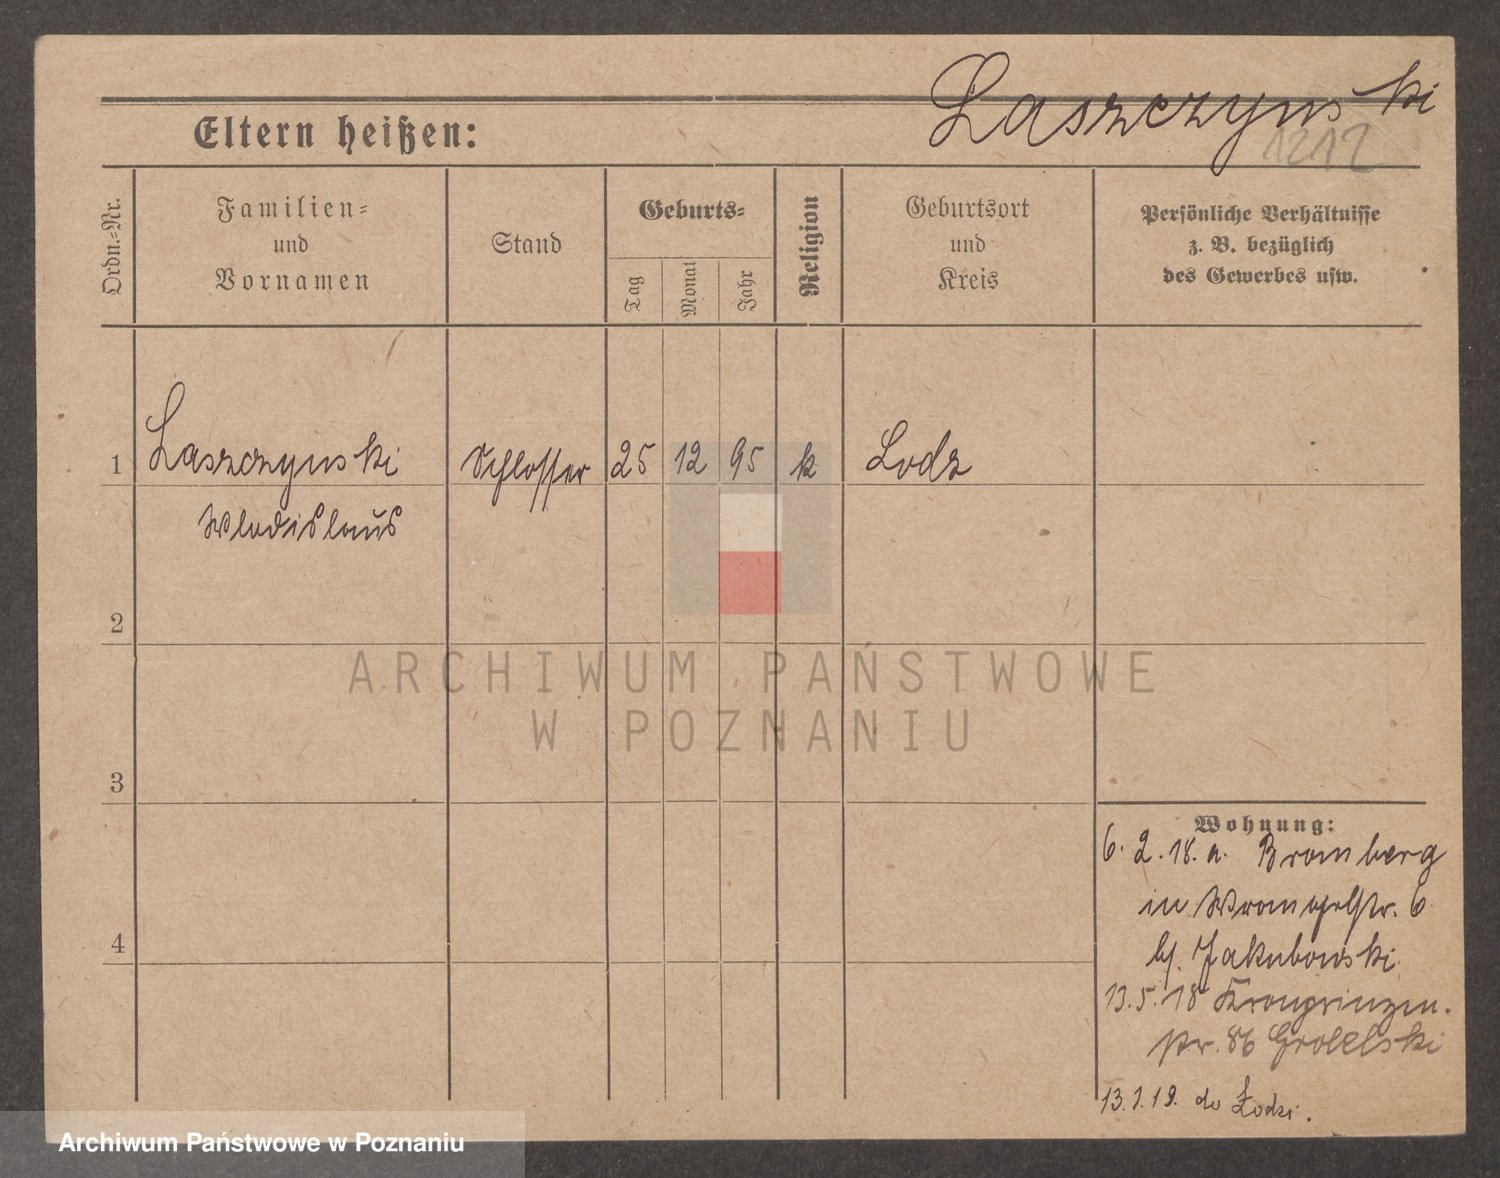 Laszczynski
1212
Eltern heißen:
Ordn.-Nr.
Familien-
und
Vornamen
Stand
Geburts-
Tag
Monat
Jahr
Religion
Geburtsort
und
Kreis
Persönliche Verhältnisse
z. B. bezüglich
des Gewerbes usw.
1 Laszczynski Schlosser 25 12 95 k Lodz
Wladislaus
2
ARCHIWUM PAŃSTWOWE
W POZNANIU
3
Wohnung:
6. 2. 18. a. Bromberg
in Wrangelstr. 6
bj. Jakubowski
4
13. 5. 18 Kronprinzen-
str. 86 Grolelski
13. 1. 19. do Łodzi.
Archiwum Państwowe w Poznaniu